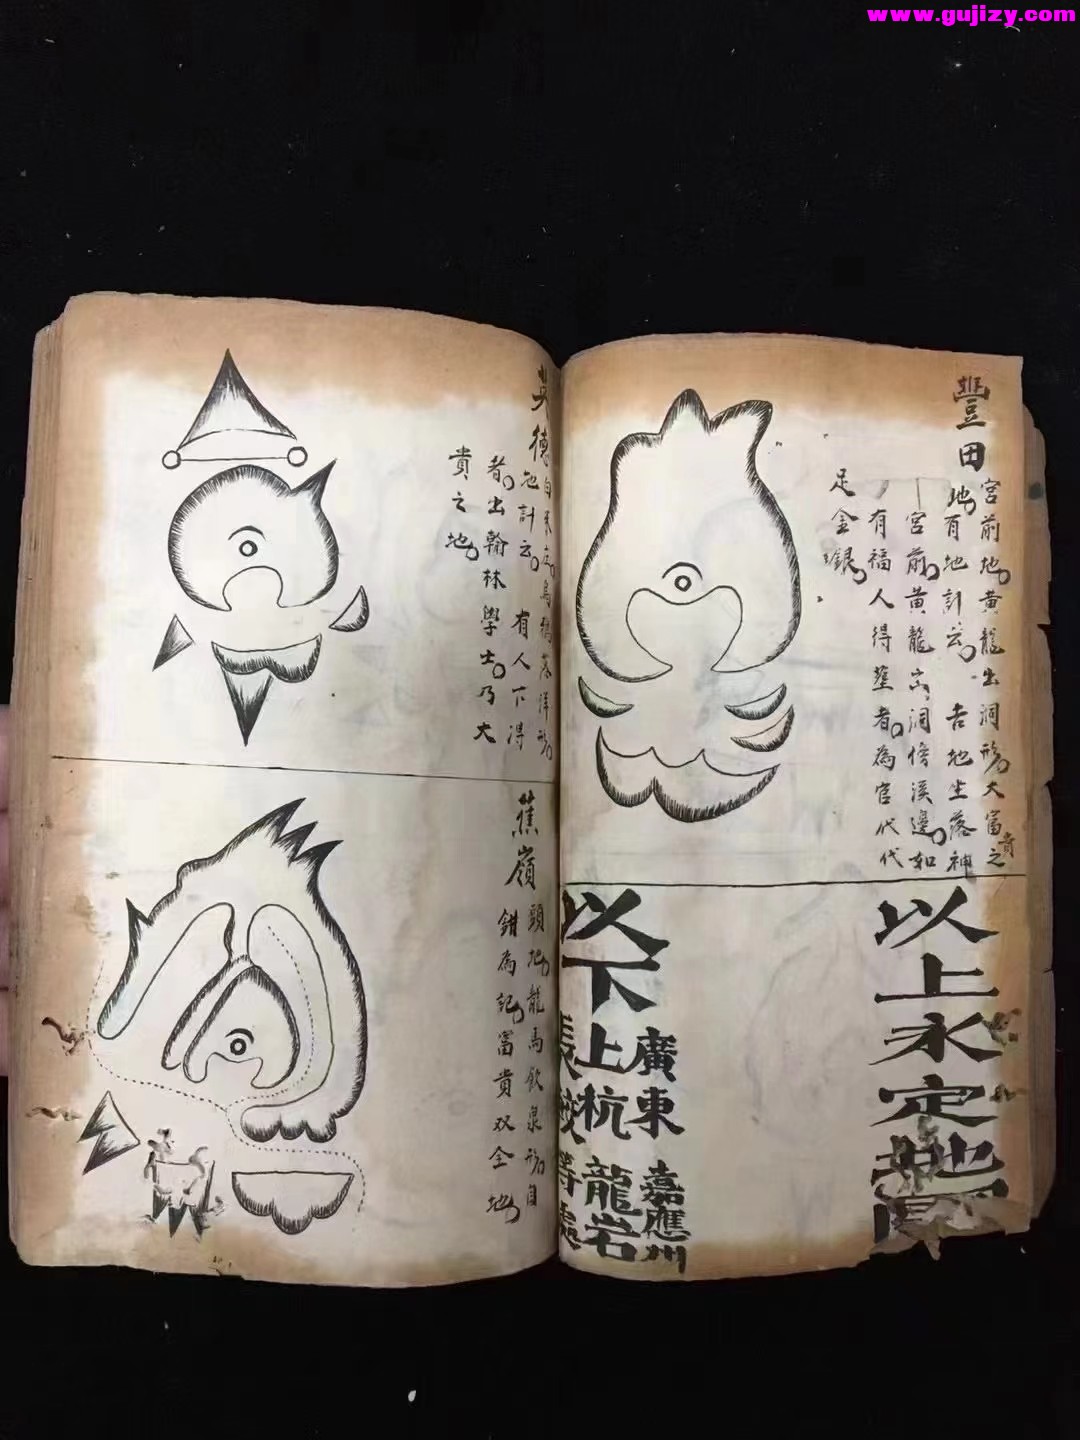 www.gujizy.com
豐田
宮前地黃龍出洞形大富貴之
地有地計云 吉地坐落神
宮前黃龍出洞傍溪邊如
有福人得塟者為官代代
足金銀
以上永定地圖
廣東 嘉應州
以下上杭 龍岩
等處
英德
烏鴉落洋形
地計云 有人下得
者出翰林學士乃大
貴之地
蕉嶺
頭地龍馬飲泉形自
鉗為記富貴双全地